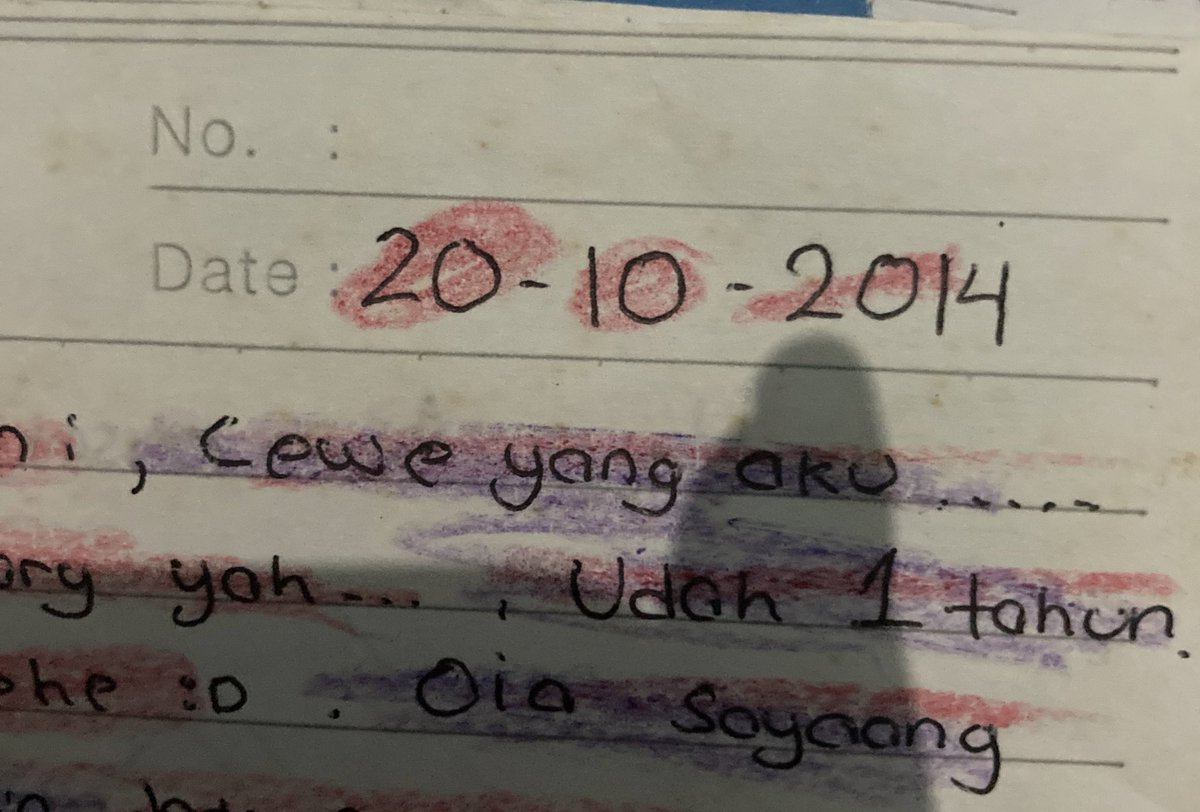 No. :
Date : 20-10-2014
ni, Cewe yang aku .....
ary yah...., Udah 1 tahun.
ehe :D . Oia Sayaang